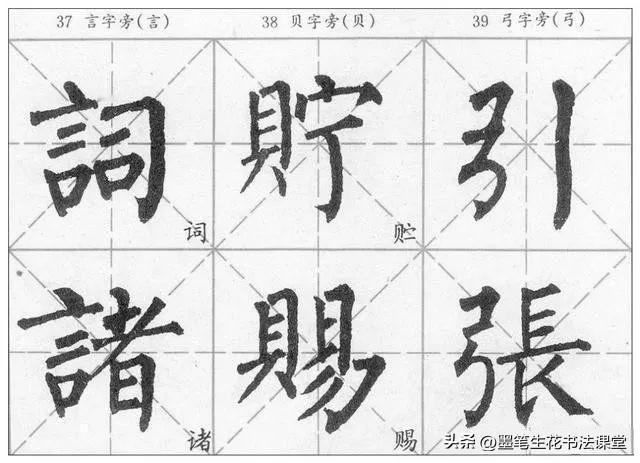 37 言字旁(言) 38 贝字旁(贝) 39 弓字旁(弓)
詞 貯 引
词 贮
諸 賜 張
诸 赐
头条 @墨笔生花书法课堂